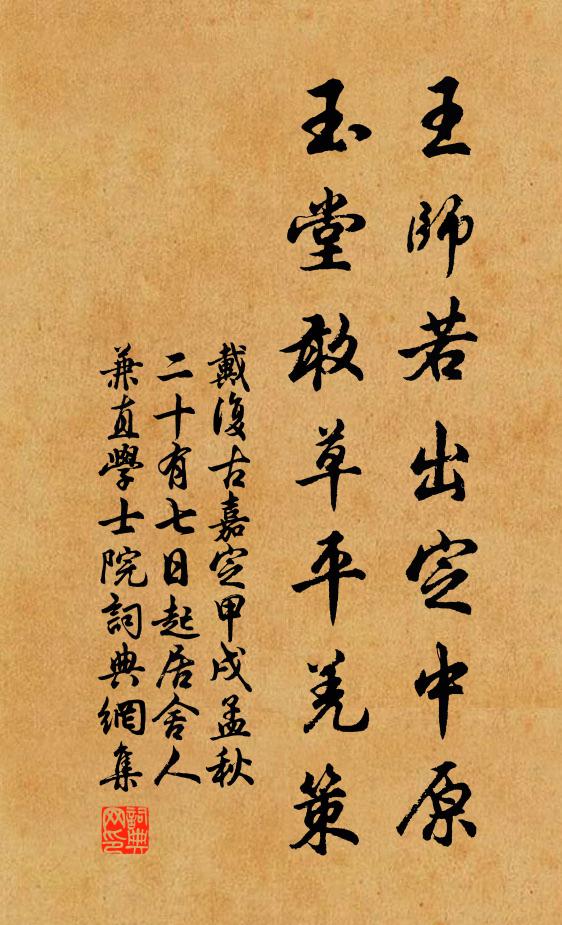 王師若出定中原
玉堂敢草平羌策
戴復古嘉定甲戌孟秋
二十有七日起居舍人
兼直學士院詞典網集
詞典网印